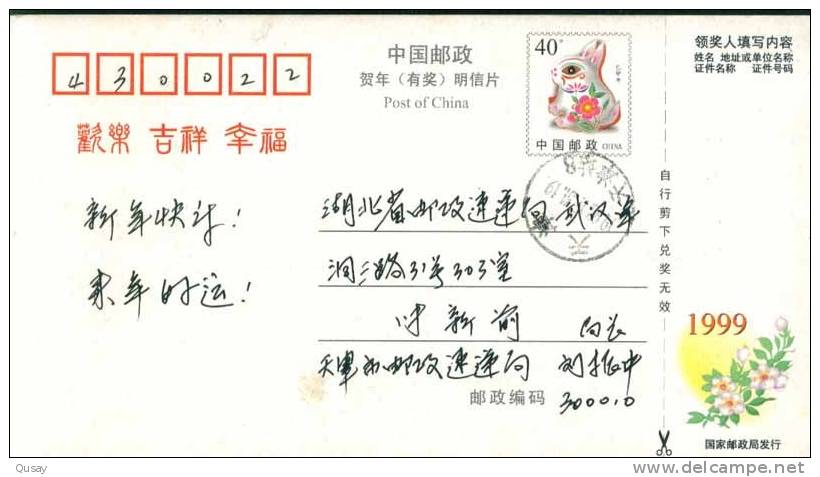 中国邮政
贺年（有奖）明信片
Post of China
430022
歡樂 吉祥 幸福
40
己卯年
中国邮政 CHINA
领奖人填写内容
姓名 地址或单位名称
证件名称 证件号码
新年快乐！
来年好运！
湖北省邮政速递局 武汉市
路31号303室
新前 局长
天津市邮政速递局 刘振中
邮政编码 300010
自行剪下兑奖无效
1999
国家邮政局发行
Qusay
www.delcampe.net